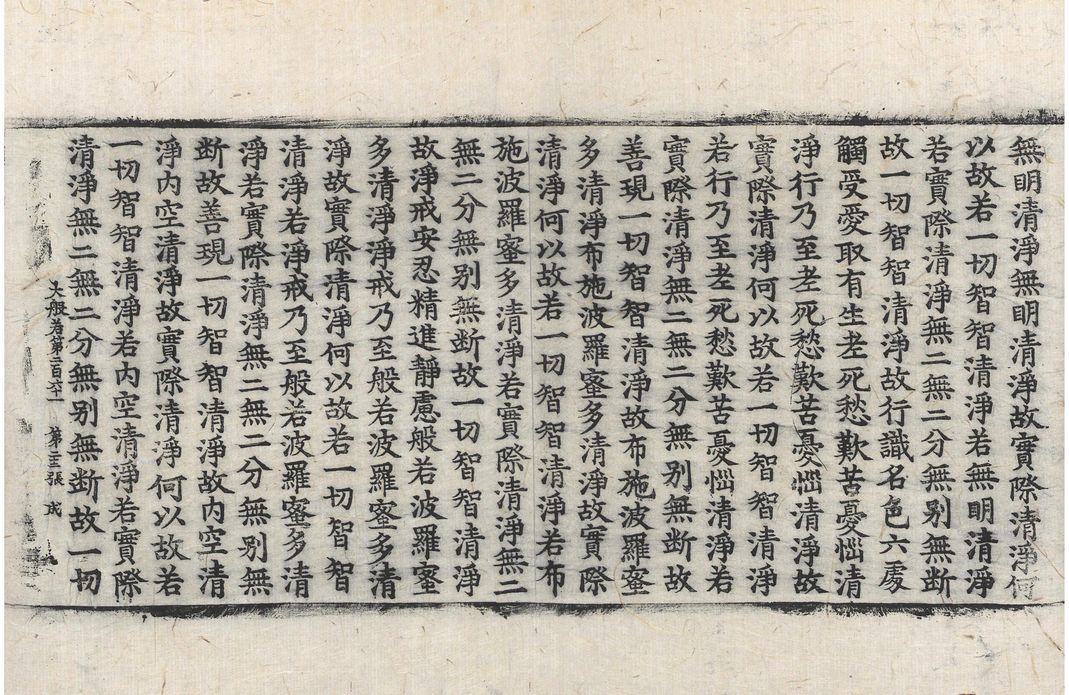 無明清淨無明清淨故實際清淨何
以故若一切智智清淨若無明清淨
若實際清淨無二無二分無别無断
故一切智智清淨故行識名色六處
觸受愛取有生老死愁歎苦憂惱清
淨行乃至老死愁歎苦憂惱清淨故
實際清淨何以故若一切智智清淨
若行乃至老死愁歎苦憂惱清淨若
實際清淨無二無二分無别無断故
善現一切智智清淨故布施波羅蜜
多清淨布施波羅蜜多清淨故實際
清淨何以故若一切智智清淨若布
施波羅蜜多清淨若實際清淨無二
無二分無别無断故一切智智清淨
故淨戒安忍精進靜慮般若波羅蜜
多清淨淨戒乃至般若波羅蜜多清
淨故實際清淨何以故若一切智智
清淨若淨戒乃至般若波羅蜜多清
淨若實際清淨無二無二分無别無
断故善現一切智智清淨故内空清
淨内空清淨故實際清淨何以故若
一切智智清淨若内空清淨若實際
清淨無二無二分無别無断故一切
大般若第二百六十一 第 張